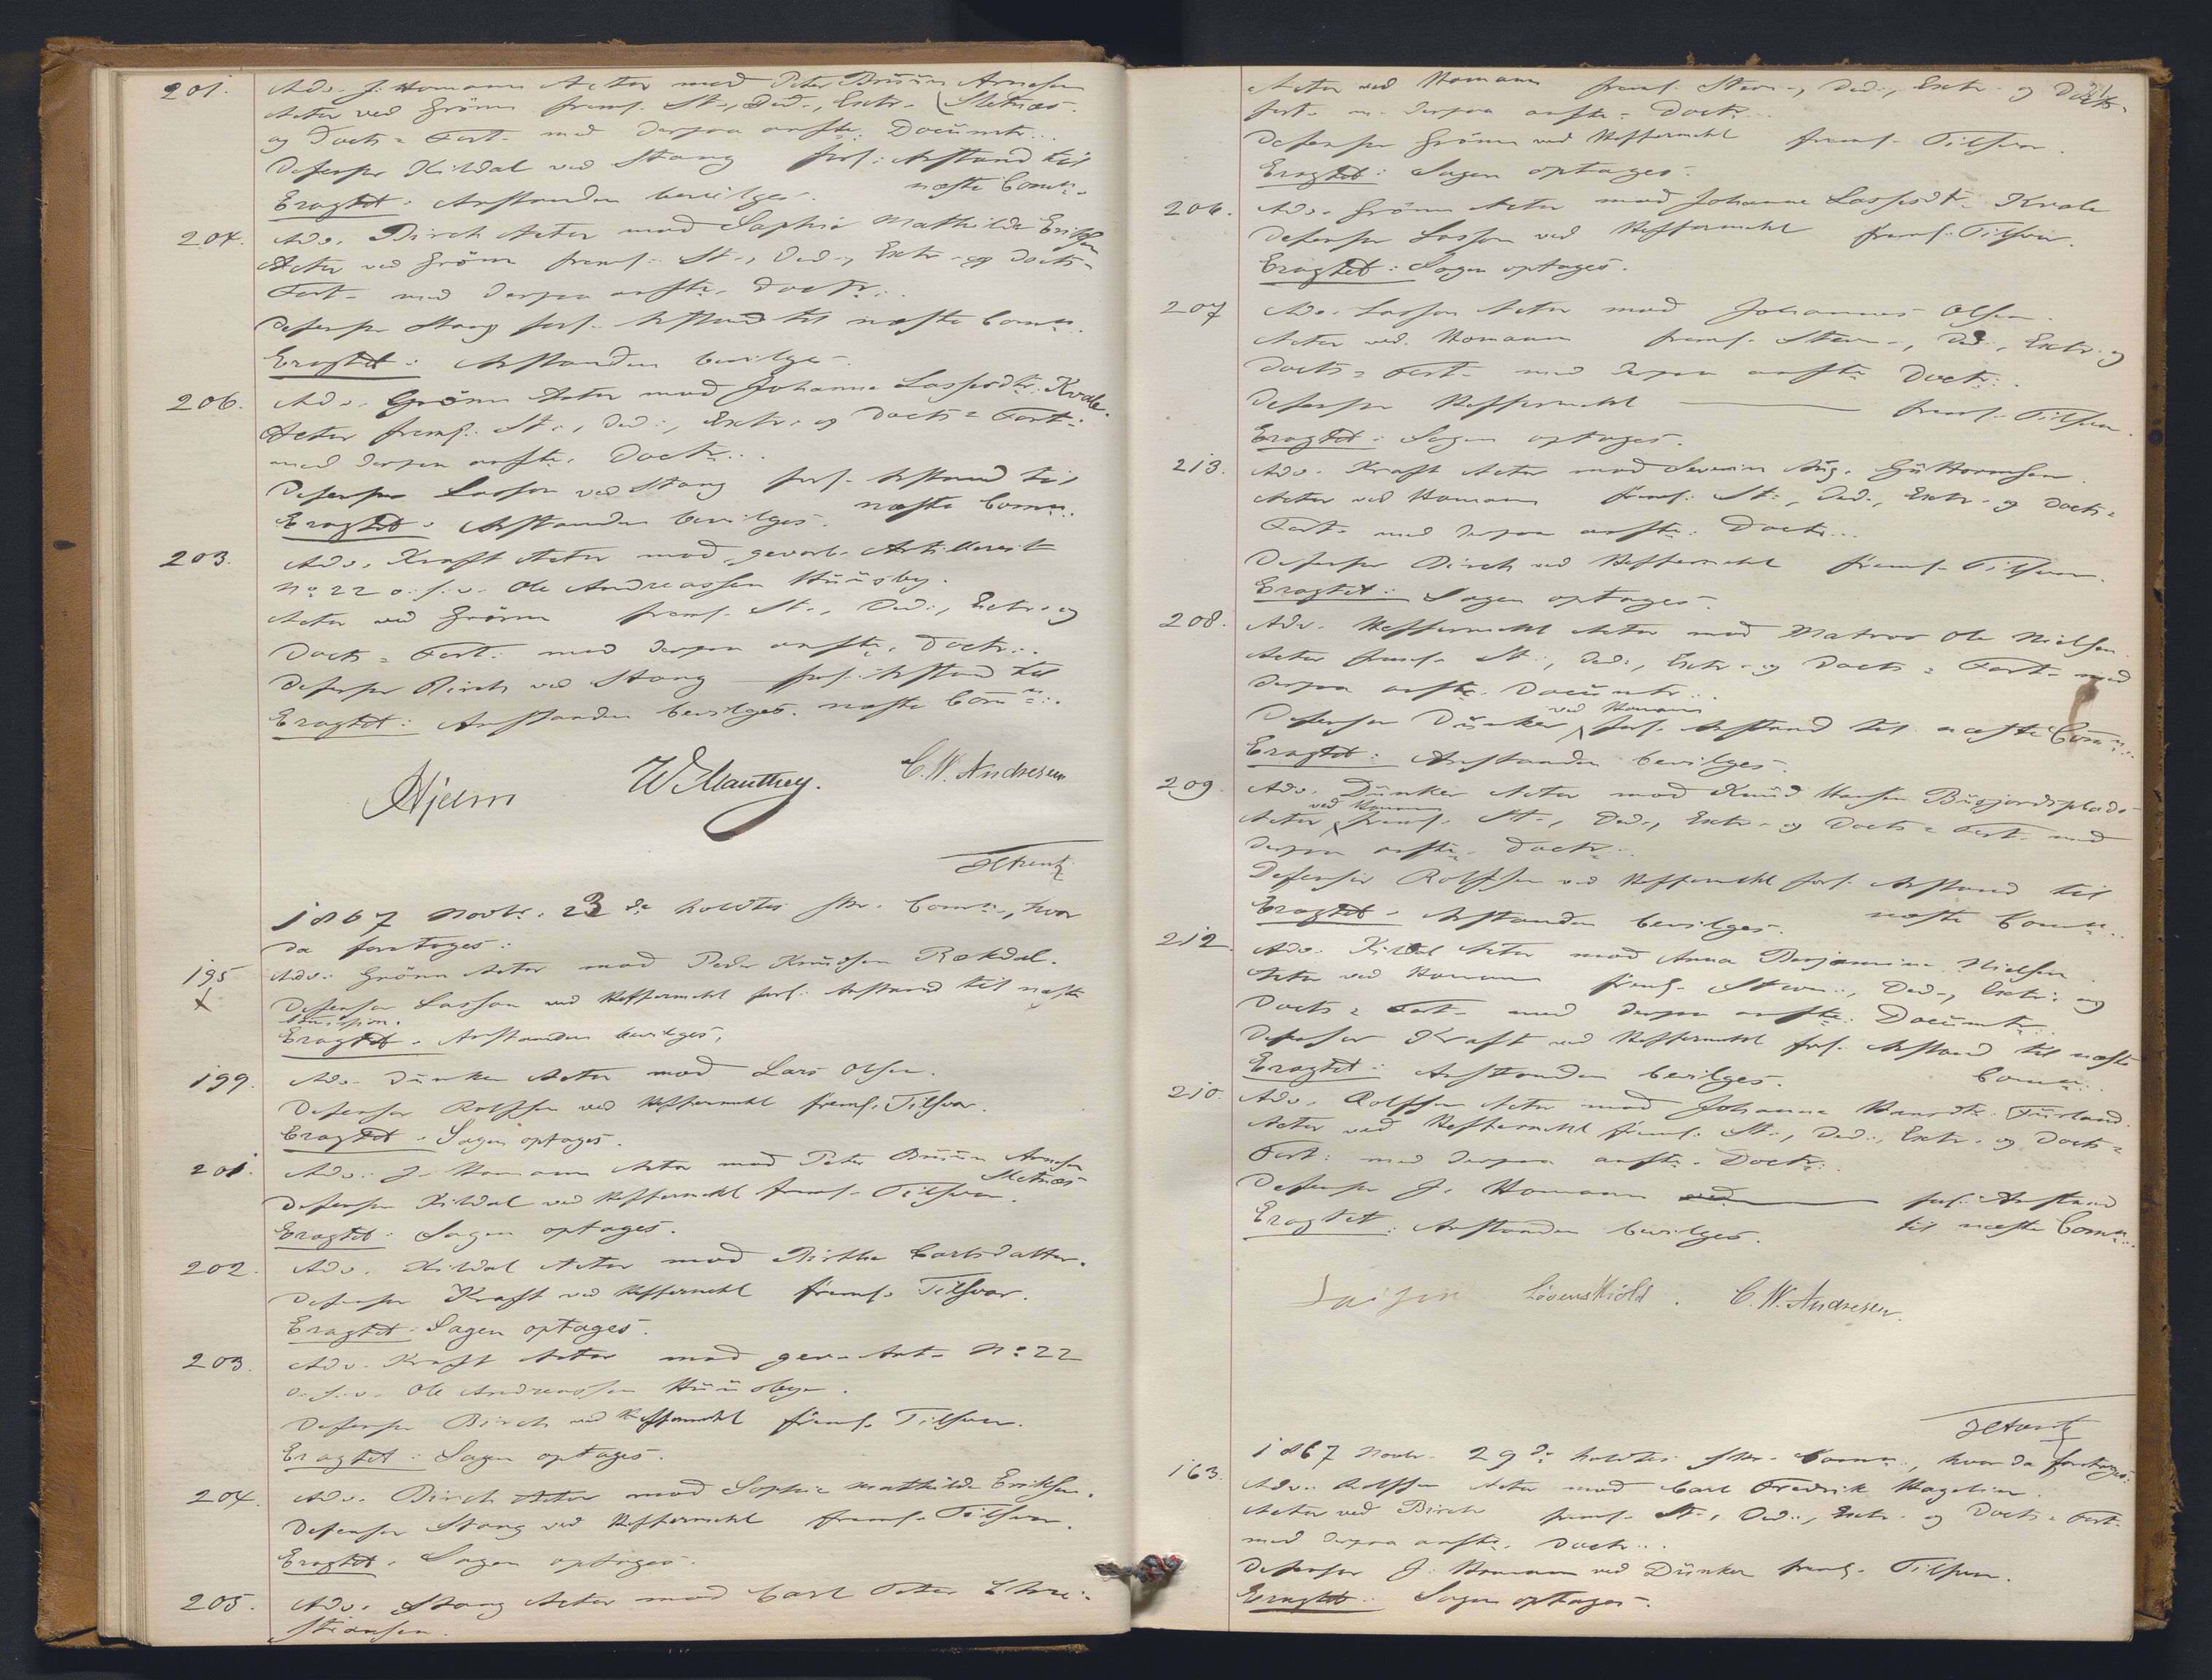 201. Adv. J. Homann Actor mod Peter Bruun Arnesen
Actor ved Grönn freml. St., Ded., Extr. Sletnæs.
og Docts- Fort. med derpaa anfte. Documtr...
Defensor Kildal ved Stang forl. Anstand til
Eragtet: Anstanden bevilges. næste Comn.
204. Adv. Birch Actor mod Sophie Mathilde Eriksen
Actor ved Grönn freml. St., Ded., Extr. og Docts-
Fort. med derpaa anfte. Doctr..
Defensor Stang forl. Anstand til næste Comn.
Eragtet: Anstanden bevilges.
206. Adv. Grönn Actor mod Johanne Lassesdtr. Kvale.
Actor freml. St., Ded., Extr. og Docts- Fort.
med derpaa anfte. Doctr...
Defensor Lasson ved Stang forl. Anstand til
Eragtet: Anstanden bevilges. næste Comn.
203. Adv. Kraft Actor mod gevorb. Artillerist
No 22 o.s.v. Ole Andreassen Huusby.
Actor ved Grönn freml. St., Ded., Extr. og
Docts- Fort. med derpaa anfte. Doctr..
Defensor Birch ved Stang forl. Anstand til
Eragtet: Anstanden bevilges. næste Comn..
Hjelm W Manthey. C. W. Andresen
1867 Novbr. 23de holdtes ... Comn., hvor
da foretoges:
195 Adv. Grönn Actor mod Peder Knudsen Rökdal.
x Defensor Lasson ved Heffermehl forl. Anstand til næste
Comission.
Eragtet. Anstanden bevilges.
199. Adv. Dunker Actor mod Lars Olsen.
Defensor Rolfsen ved Heffermehl freml. Tilsvar.
Eragtet. Sagen optages.
201. Adv. J. Homann Actor mod Peter Bruun Arnesen
Sletnæs
Defensor Kildal ved Heffermehl freml. Tilsvar.
Eragtet: Sagen optages.
202. Adv. Kildal Actor mod Birthe Carlsdatter.
Defensor Kraft ved Heffermehl freml. Tilsvar.
Eragtet: Sagen optages.
203. Adv. Kraft Actor mod gev. Art. No 22
o.s.v. Ole Andreassen Huusbye.
Defensor Birch ved Heffermehl freml. Tilsvar.
Eragtet: Sagen optages.
204. Adv. Birch Actor mod Sophie Mathilde Eriksen.
Defensor Stang ved Heffermehl freml. Tilsvar.
Eragtet. Sagen optages.
205. Adv. Stang Actor mod Carl Peter Chri-
stiansen.
Actor ved Homann freml. Stevn., Ded., Extr. og Docts-
fort. m. derpaa anfte. Doctr...
Defensor Grönn ved Heffermehl freml. Tilsvar.
Eragtet: Sagen optages.
206. Adv. Grönn Actor mod Johanne Lassesdtr. Kvale
Defensor Lasson ved Heffermehl freml. Tilsvar.
Eragtet: Sagen optages.
207 Adv. Lasson Actor mod Johannes Olsen.
Actor ved Homann freml. Stevn., Ded., Extr. og
Docts- Fort. med derpaa anfte Doctr..
Defensor Heffermehl freml. Tilsvar.
Eragtet: Sagen optages.
213. Adv. Kraft Actor mod Severin Aug. Guttormsen.
Actor ved Homann freml. St., Ded., Extr. og Docts-
Fort. med derpaa anfte. Doctr...
Defensor Birch ved Heffermehl freml. Tilsvar.
Eragtet: Sagen optages.
208. Adv. Heffermehl Actor mod Matros Ole Nielsen.
Actor freml. St., Ded., Extr. og Docts- Fort. med
derpaa anfte. Documtr..
ved Homann
Defensor Dunker forl. Anstand til næste Comn..
Eragtet: Anstanden bevilges.
209. Adv. Dunker Actor mod Knud Hansen Busjordsplads
ved Homann
Actor freml. St., Ded., Extr. og Docts- Fort. med
derpaa anfte. Doctr..
Defensor Rolfsen ved Heffermehl forl. Anstand til
Eragtet: Anstanden bevilges. næste Comn..
212. Adv. Kildal Actor mod Anna Benjamine Nielsen.
Actor ved Homann freml. Stevn., Ded., Extr. og
Docts- Fort. med derpaa anfte. Documtr..
Defensor Kraft ved Heffermehl forl. Anstand til næste
Eragtet: Anstanden bevilges. Comn..
210. Adv. Rolfsen Actor mod Johanne Hansdtr. Furland.
Actor ved Heffermehl freml. St., Ded., Extr. og Docts-
Fort. med derpaa anfte. Doctr..
Defensor J. Homann ved forl. Anstand
Eragtet: Anstanden bevilges. til næste Comn..
Løvenskiold. C. W. Andresen.
1867 Novbr. 29de holdtes ... Comn., hvor da foretoges:
163. Adv. Rolfsen Actor mod Carl Fredrik Hagelin.
Actor ved Birch freml. St., Ded., Extr. og Docts- Fort.
med derpaa anfte. Doctr...
Defensor J. Homann ved Dunker freml. Tilsvar.
Eragtet: Sagen optages.